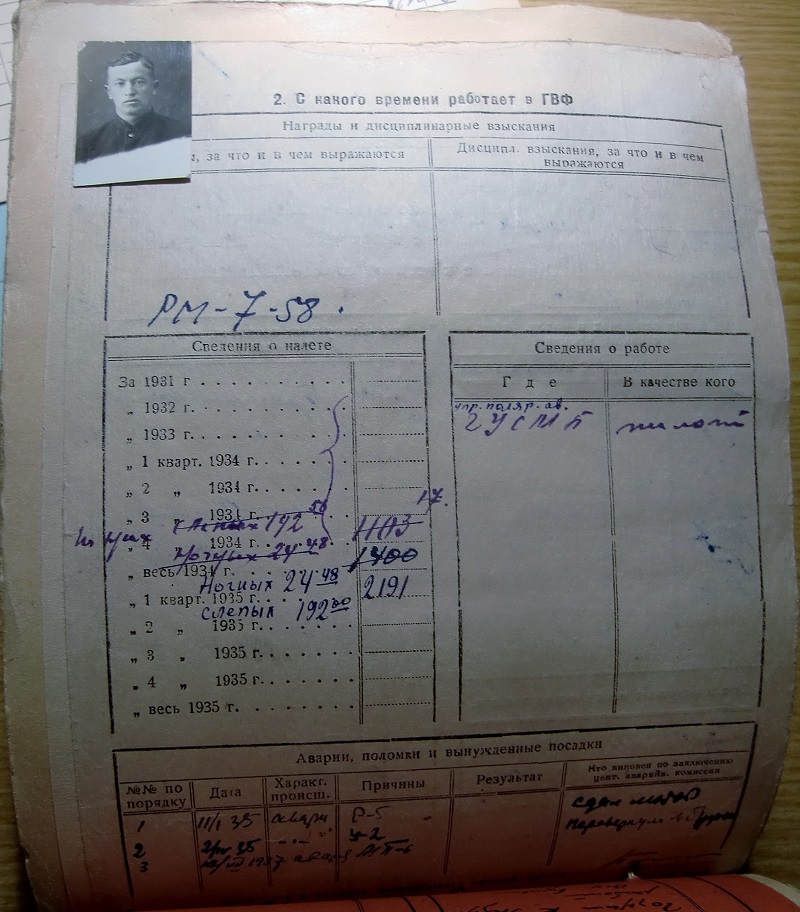 2. С какого времени работает в ГВФ
Награды и дисциплинарные взыскания
, за что и в чем выражаются
Дисципл. взыскания, за что и в чем выражаются
РМ-7-58.
Сведения о налете
За 1931 г.
„ 1932 г.
„ 1933 г.
„ 1 кварт. 1934 г.
„ 2 „ 1934 г.
„ 3 1934 г.
192 50
17.
1103
„ 4 1934 г.
Ночных 24 48
1400
„ весь 1934 г.
Ночных 24 48
2191
„ 1 кварт. 1935 г.
Слепых 192
„ 2 „ 1935 г.
„ 3 „ 1935 г.
„ 4 „ 1935 г.
„ весь 1935 г.
Сведения о работе
Где
В качестве кого
упр. поляр. ав.
ГУСМП
пилот
Аварии, поломки и вынужденные посадки
№№ по порядку
Дата
Характ. происш.
Причины
Результат
Кто виновен по заключению цент. аварийн. комиссии
1
11/I 35
авари
Р-5
сдал мотор
2
35
У-2
3
1937
авария
МП-6